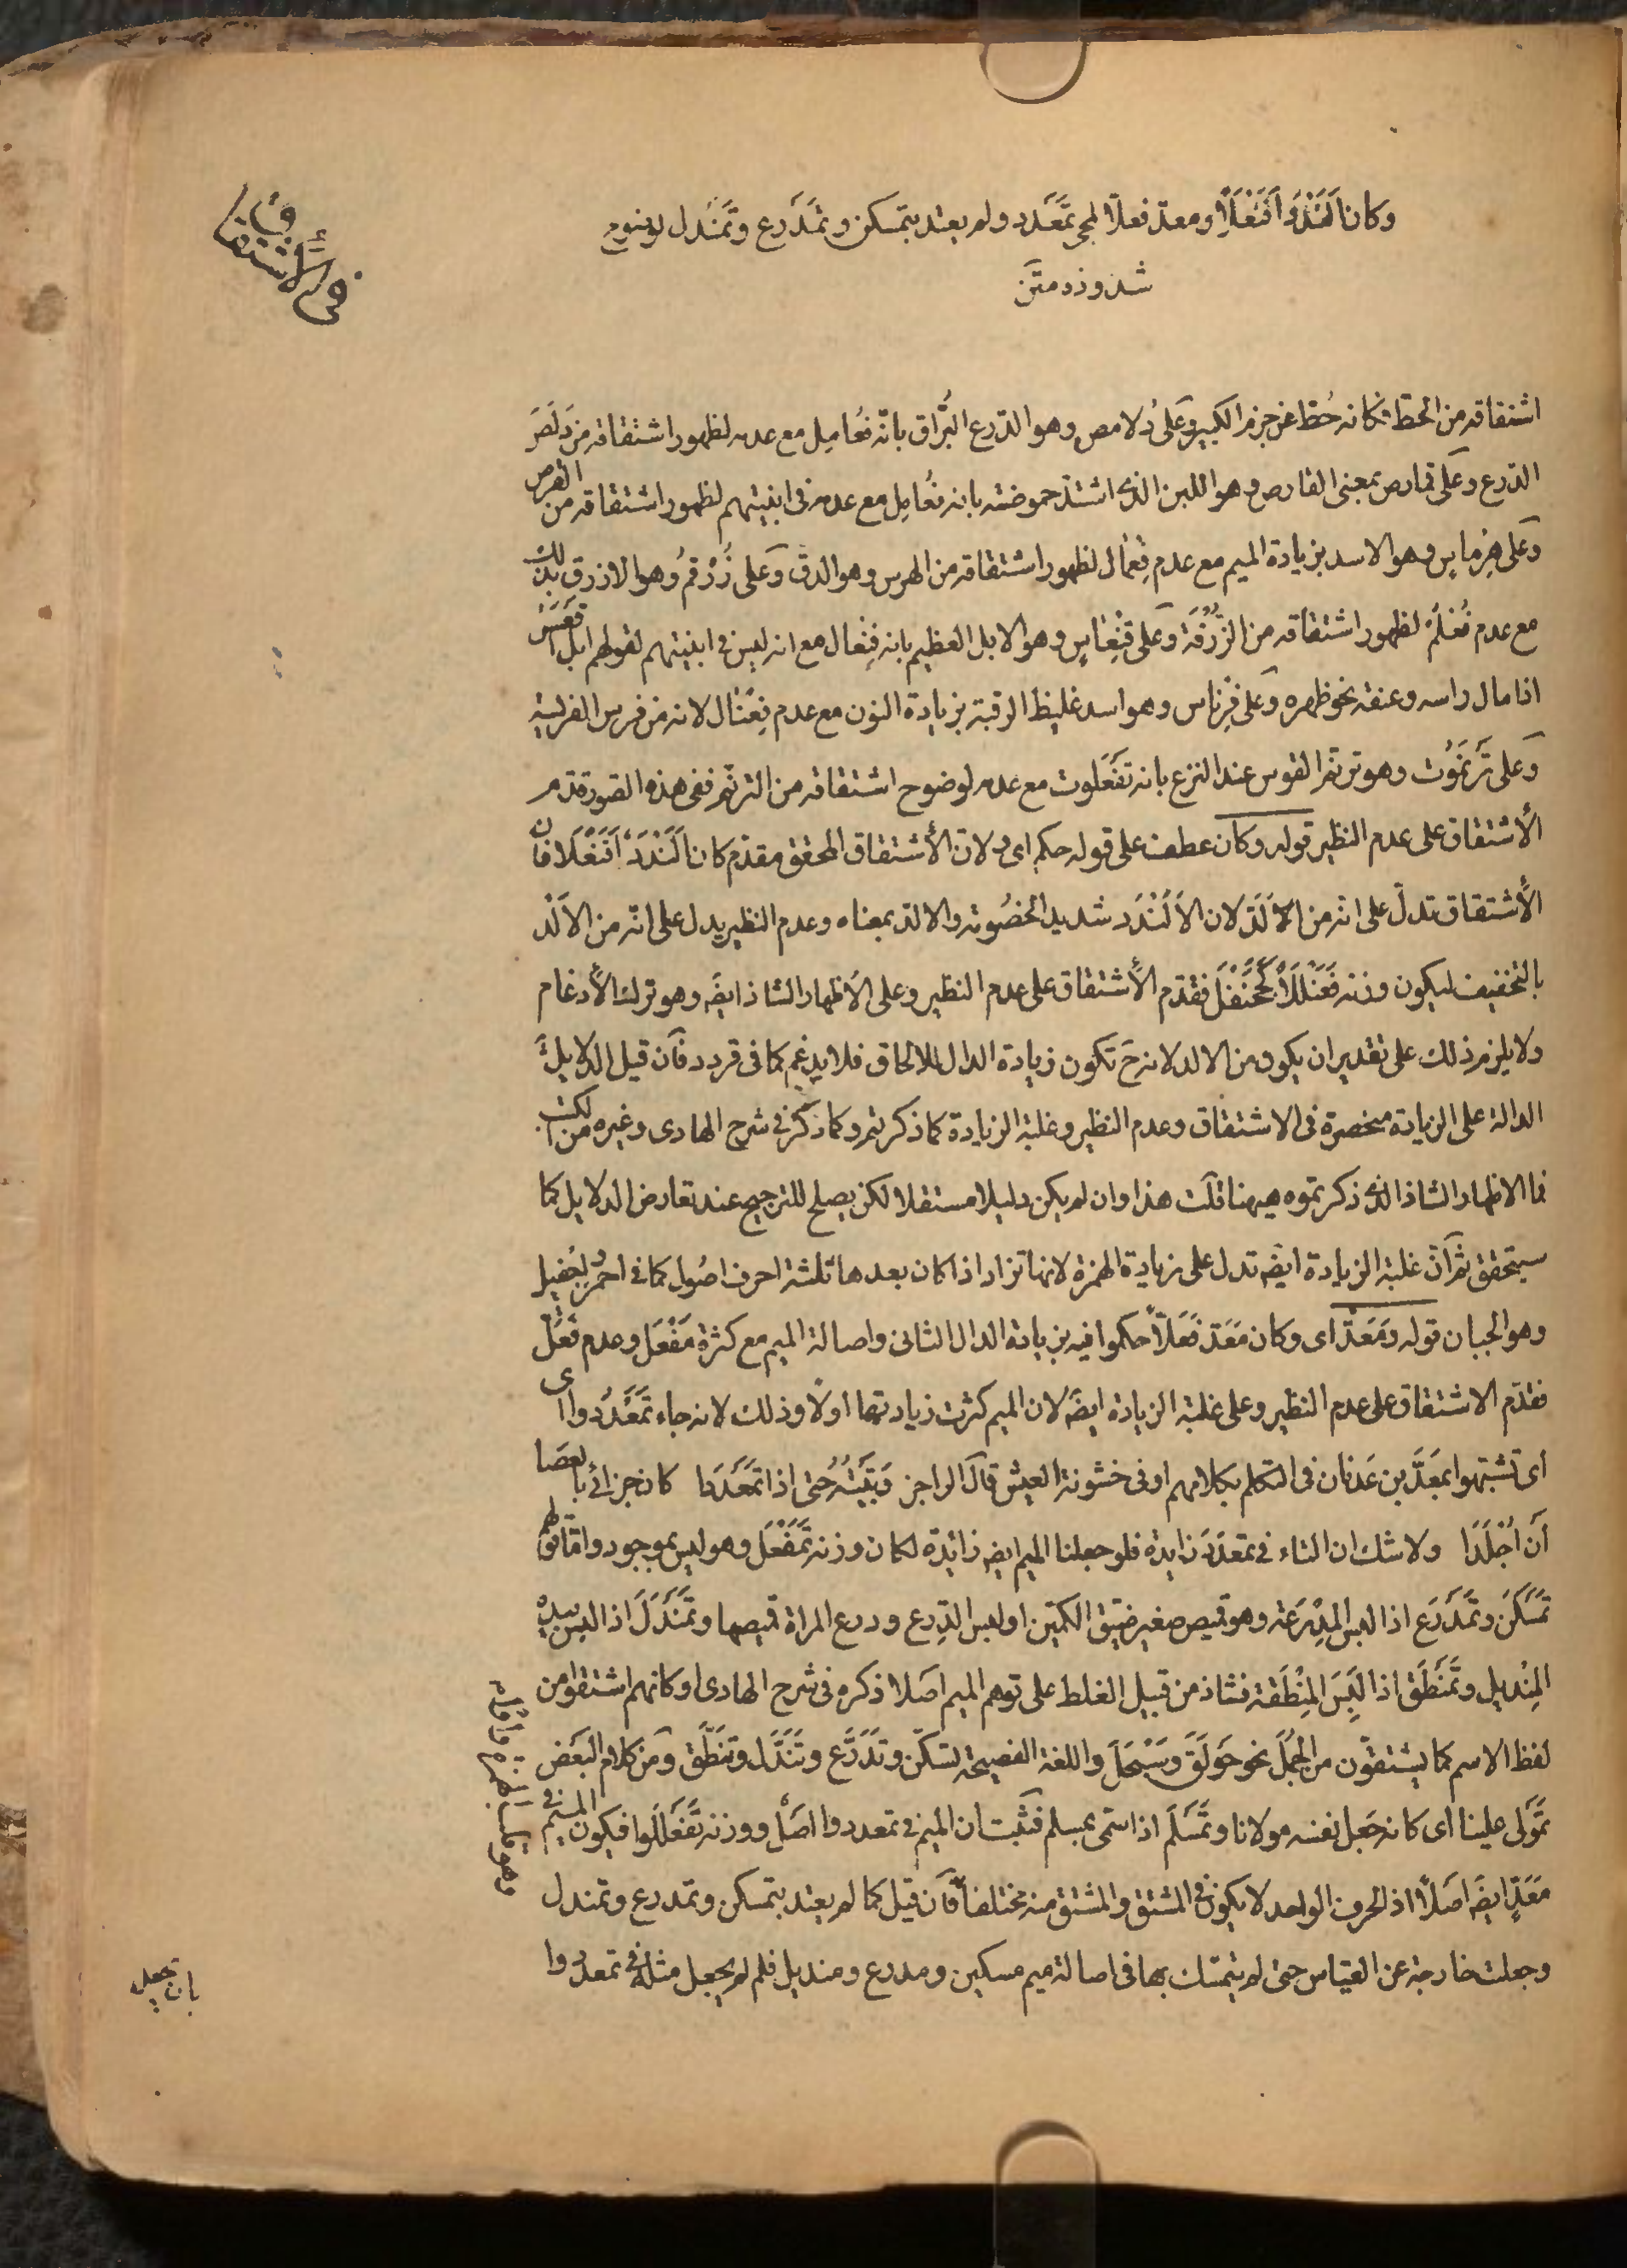 وكان اَلَنْدَدٌ اَفَنْعَلًا ومعدّ فعلّا لمجئ تمَعْدَد ولم يعتد بتمسكن وتمَدْرع وتمَنْدل لوضوح
شذوذه
في الاشتقاق
اشتقاقه من الحطّ فكانه حُطّ عن جرم الكبير وعلى دُلامص وهو الدّرع البرّاق بانّه فعُامِل مع عدمه لظهور اشتقاقه من دَلَصَ
الدّرع وعلى قمارص بمعنى القارص وهو اللبن الذى اشتدّ حموضته بانه فعُامِل مع عدمه فى ابنيتهم لظهور اشتقاقه من القرص
وعلى هِرْماسٍ وهو الاسد بزيادة الميم مع عدم فِعْمال لظهور اشتقاقه من الهرس وهو الدق وعلى زُرْقمُ وهو الازرق بذلك
مع عدم فُعْلُمٌ لظهور اشتقاقه من الزُّرْقَة وعلى قِنْعاسٍ وهو الابل العظيم بانه فِنْعال مع انه ليس فى ابنيتهم لقولهم ابل اقعَسَْ
اذا مال راسه وعنقه نحو ظهره وعلى فِرْناس وهو اسد غليظ الرقبة بزيادة النون مع عدم فِعْنال لانه من فرس الفريسة
وعلى تَرْنَمُوت وهو ترنّم القوس عند النزع بانه تَفَعَلوت مع عدمه لوضوح اشتقاقه من الترنّم ففى هذه الصورة قدم
الأشتقاق على عدم النظير قوله وكان عطف على قوله حكم اى ولان الأشتقاق المحقق مقدّم كان اَلَنْدَدٌ اَفَنْعَلًا فان
الأشتقاق تدلّ على انّه من الاَلَدّ لان الاَلَنْدَد شديد الخصُومة والالدّ بمعناه وعدم النظير يدل على انّه من الاَلْد
بالتخفيف ليكون وزنه فَعَنْلَلًا كجَحَنْفَل فقدّم الأشتقاق على عدم النظير وعلى الأظهار الشاذ ايضَه وهو ترك الأدغام
ولا يلزم ذلك على تقدير ان يكون من الالد لانه حَ تكون زيادة الدال للالحاق فلا يدغم كما فى قردد فآن قيل الدلايل
الدالة على الزيادة منحصرة فى الاشتقاق وعدم النظير وغلبة الزيادة كما ذكرتم وكما ذكر فى شرح الهادى وغيره من الكتب
فما الاظهار الشاذ الذى ذكرتموه هيهنا قلت هذا وان لم يكن دليلا مستقلا لكن يصلح للترجيح عند تعارض الدلايل كما
سيتحقق ثم آن غلبة الزيادة ايضَه تدل على زيادة الهمزة لانها تزاد اذا كان بعدها ثلثة احرف اصُول كما فى احمرّ واجفيل
وهو الجبان قوله ومَعَدّ اى وكان مَعَدّ فَعَلّا حكموا فيه بزيادة الدال الثانى واصالة الميم مع كثرة مَفْعَل وعدم فَعَلّ
فقدّم الاشتقاق على عدم النظير وعلى غلبة الزيادة ايضَه لان الميم كثرت زيادتها اولًا وذلك لانه جاء تمَعْدَدُوا اى
اى تشبّهوا بمَعَدّ بن عَدنان فى التكلم بكلامهم او فى خشونة العيش قالَ الراجز رَبَّيْتُهُ حَتى اذا تمَعْدَدا كان جزائى بالعَصَا
اَن اُجْلَدَا ولا شك ان التاء فى تمعْدَدَ زايدة فلو جعلنا الميم ايضه زائدة لكان وزنه تَمَفْعَل وهو ليس بموجود وامّا قولهم
تَمَسْكَنَ وتمَدْرَعَ اذا لبس المِدْرَعَة وهو قميص صغير ضيّق الكمّين او لبس الدِّرع ودرع المراة قميصها وتمَنْدَلَ اذا لبس بيده
المِنْديل وتمَنْطَقَ اذا لَبِسَ المِنْطَقة فشاذ من قبيل الغلط على توهم الميم اصَلا ذكره فى شرح الهادى وكانهم اشتقوا من
لفظ الاسم كما يشتقّون من الجُمَل نحو حَوْلَقَ وسَبْحَلَ واللغة الفصيحة تسَكّن وتَدَرَّع وتَنَدَّل وتَنَطَّق ومن كلام البَعَض
تمَوْلى علينا اى كانه جَعَل نفسه مولانا وتمَسْلَم اذا سمّى بمسلم فثَبت ان الميم فى تمعددوا اصَل ووزنه تَفَعْلَلُوا فيكون الميم فى
مَعَدّ ايضَه اصَلًا اذ الحرف الواحد لا يكون فى المشتق والمشتق منه مختلفا فآن قيل كما لم يعتد بتمسكن وتمدرع وتمندل
وجعلت خارجة عن القياس حتى لم يتمسّك بها فى اصالة ميم مسكين ومدرع ومنديل فلم لم يجعل مثلها فى تمعدُدوا
بان تجعل